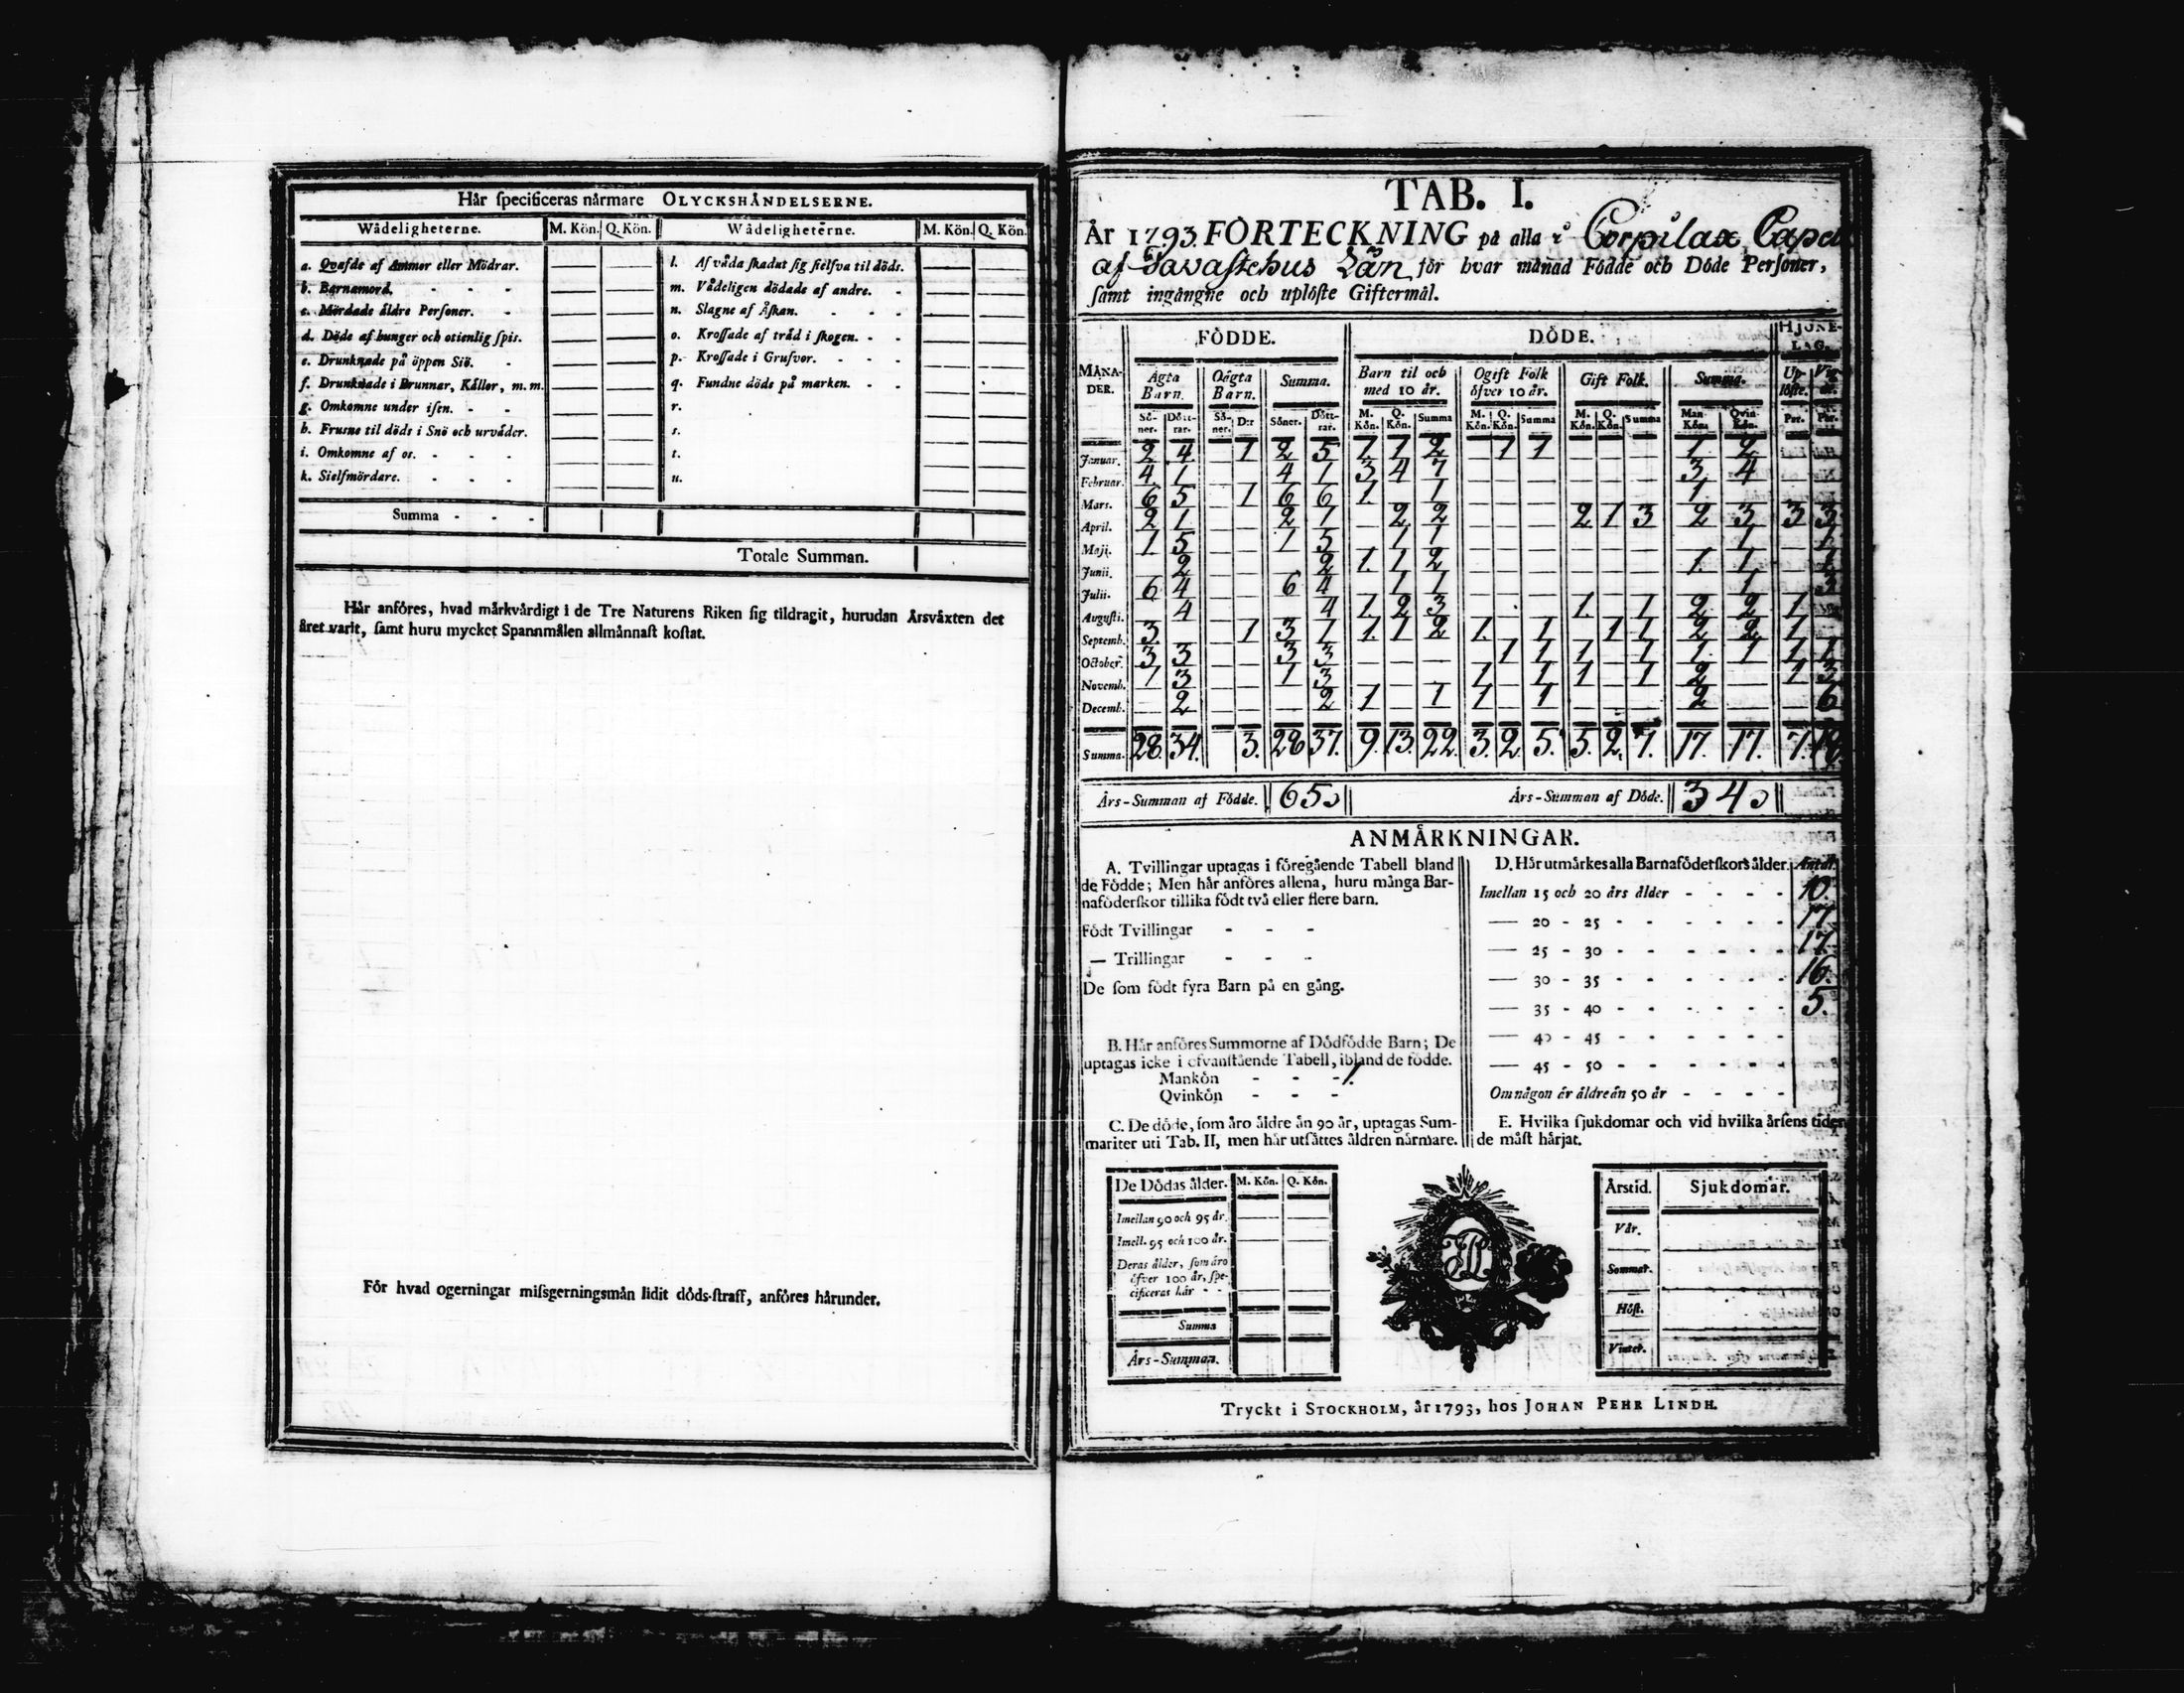 Hår ſpecificeras nårmare OLYCKSHÅNDELSERNE.
Wådeligheterne. M. Kön. Q. Kön. Wådeligheterne. M. Kön. Q. Kön.
a. Qvafde af Ammor eller Mödrar. l. Af våda ſkadat ſig ſielfva til döds.
b. Barnamord. - - - m. Vådeligen dödade af andre. -
c. Mördade åldre Perſoner. - n. Slagne af Åſkan. - - -
d. Döde af hunger och otienlig ſpis. o. Kroſſade af tråd i ſkogen. - -
e. Drunknade på öppen Siö. - p. Kroſſade i Grufvor. - - -
f. Drunknade i Brunnar, Kållor, m. m. q. Fundne döde på marken. - -
g. Omkomne under iſen. - - r.
h. Frusne til döds i Snö och urvåder. s.
i. Omkomne af os. - - - t.
k. Sielfmördare. - - - u.
Summa - - -
Totale Summan.
Hår anföres, hvad mårkvårdigt i de Tre Naturens Riken ſig tildragit, hurudan Årsvåxten det
året varit, ſamt huru mycket Spannmålen allmånnaſt koſtat.
För hvad ogerningar miſsgerningsmån lidit döds-ſtraff, anföres hårunder.
TAB. I.
År 1793. FÖRTECKNING på alla i Corpilax Capell
af Tavastehus Län för hvar månad Födde och Döde Perſoner,
ſamt ingångne och uplöſte Giftermål.
FÖDDE. DÖDE. HJONE-LAG.
MÅNADER. Ägta Barn. Oägta Barn. Summa. Barn til och med 10 år. Ogift Folk öfver 10 år. Gift Folk. Summa. Uplöſte.
Söner. Döttrar. Söner. D:r Söner. Döttrar. M. Kön. Q. Kön. Summa M. Kön. Q. Kön. Summa M. Kön. Q. Kön. Summa Man-Kön. Qvin-Kön. Par. Par.
Januar. 2 4 1 2 5 1 1 2 1 1 1 2
Februar. 4 1 4 1 3 4 7 3 4
Mars. 6 5 1 6 6 1 1 1
April. 2 1 2 1 2 2 2 1 3 2 3 3 3
Maji. 1 5 1 5 1 1 1 1
Junii. 2 2 1 1 2 1 1 1
Julii. 6 4 6 4 1 1 1 3
Auguſti. 4 4 1 2 3 1 1 2 2 1
Septemb. 3 1 3 1 1 1 2 1 1 1 1 2 2 1
October. 3 3 3 3 1 1 1 1 1 1 1 1
Novemb. 1 3 1 3 1 1 1 1 2 1 3
Decemb. 2 2 1 1 1 1 2 6
Summa. 28. 34. 3. 28 37. 9. 13. 22. 3. 2 5. 5. 2. 7. 17. 17. 7.
Års-Summan af Födde. 65 Års-Summan af Döde. 34
ANMÅRKNINGAR.
A. Tvillingar uptagas i föregående Tabell bland
de Födde; Men hår anföres allena, huru många Bar-
naföderſkor tillika födt två eller flere barn.
Födt Tvillingar - - -
— Trillingar - - -
De ſom födt fyra Barn på en gång.
B. Hår anföres Summorne af Dödfödde Barn; De
uptagas icke i ofvanſtående Tabell, ibland de födde.
Mankön - - - 1.
Qvinkön - - -
C. De döde, ſom åro åldre ån 90 år, uptagas Sum-
mariter uti Tab. II, men hår utſåttes åldren nårmare.
D. Hår utmårkes alla Barnaföderſkors ålder. Antal.
Imellan 15 och 20 års ålder - - - - 10.
— 20 - 25 - - - - - - 17
— 25 - 30 - - - - - - 17.
— 30 - 35 - - - - - - 16.
— 35 - 40 - - - - - - 5.
— 40 - 45 - - - - - -
— 45 - 50 - - - - - -
Om någon år åldre ån 50 år - - - -
E. Hvilka ſjukdomar och vid hvilka årſens tider
de måſt hårjat.
De Dödas ålder. M. Kön. Q. Kön.
Imellan 90 och 95 år.
Imell. 95 och 100 år.
Deras ålder, ſom åro
öfver 100 år, ſpe-
cificeras hår - -
Summa
Års-Summan.
Årstid. Sjukdomar.
Vår.
Sommar.
Höſt.
Vinter.
Tryckt i STOCKHOLM, år 1793, hos JOHAN PEHR LINDH.